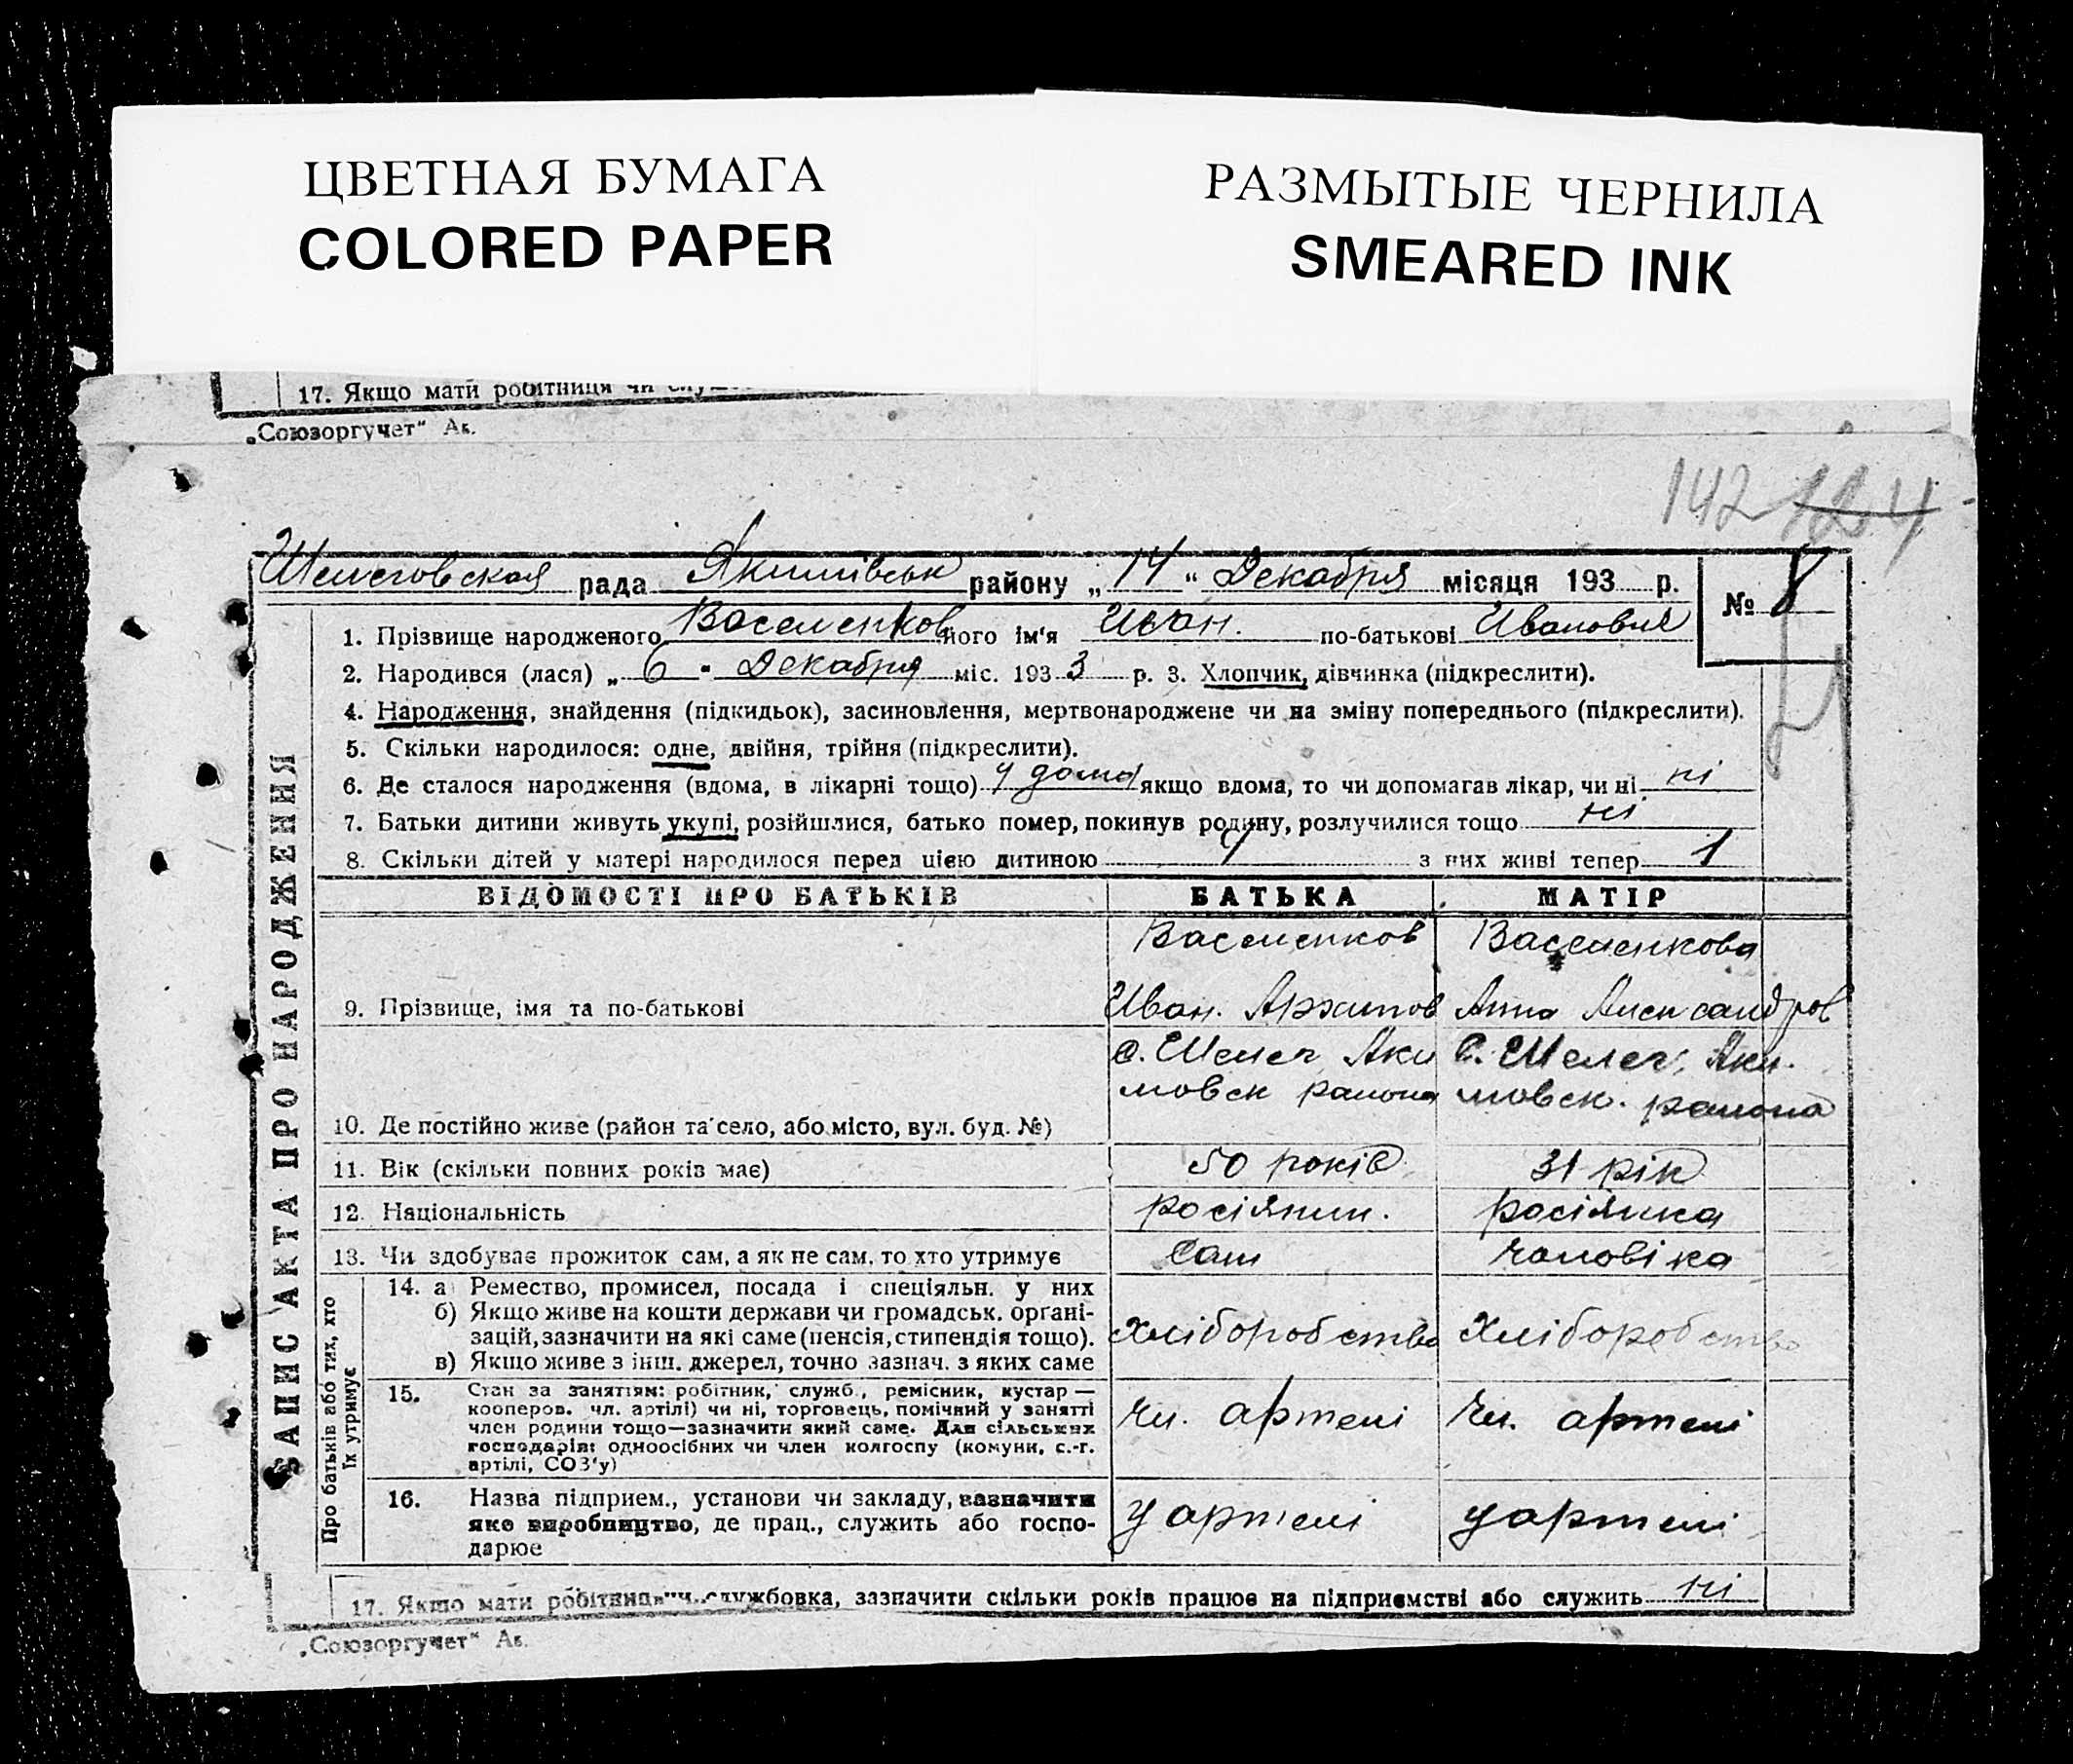 ЦВЕТНАЯ БУМАГА
COLORED PAPER
РАЗМЫТЫЕ ЧЕРНИЛА
SMEARED INK
17. Якщо мати робітниця чи
„Союзоргучет“ Ак.
142 124
Шелеговская рада Якимівськ района району „ 14 “ Декабря місяця 193 р.
№ 8
1. Прізвище народженого Васеленков його ім'я Иван. по-батькові Иванович
2. Народився (лася) „ 6 “ Декабря міс. 193 3 р. 3. Хлопчик, дівчинка (підкреслити).
4. Народження, знайдення (підкидьок), засиновлення, мертвонароджене чи на зміну попереднього (підкреслити).
5. Скільки народилося: одне, двійня, трійня (підкреслити).
6. Де сталося народження (вдома, в лікарні тощо) у дома якщо вдома, то чи допомагав лікар, чи ні ні
7. Батьки дитини живуть укупі, розійшлися, батько помер, покинув родину, розлучилися тощо ні
8. Скільки дітей у матері народилося перед цією дитиною з них живі тепер 1
ЗАПИС АКТА ПРО НАРОДЖЕННЯ
ВІДОМОСТІ ПРО БАТЬКІВ БАТЬКА МАТІР
Васеленков Васеленкова
9. Прізвище, імя та по-батькові Иван. Архипов Анна Александров
с. Шелег Аки с. Шелег, Аки.
мовск района мовск. района
10. Де постійно живе (район та село, або місто, вул. буд. №)
11. Вік (скільки повних років має) 50 років 31 рік
12. Національність росіянин. росіянка
13. Чи здобуває прожиток сам, а як не сам, то хто утримує Сам чоловіка
Про батьків або тих, хто
їх утримує
14. а) Ремество, промисел, посада і спеціяльн. у них
б) Якщо живе на кошти держави чи громадськ. органі-
зацій, зазначити на які саме (пенсія, стипендія тощо). Хліборобство Хліборобство
в) Якщо живе з інш. джерел, точно зазнач. з яких саме
15. Стан за заняттям: робітник, служб., ремісник, кустар —
кооперов. чл. артілі) чи ні, торговець, помічний у занятті
член родини тощо—зазначити який саме. Для сільських Чл. артелі Чл. артелі
господарів: одноосібних чи член колгоспу (комуни, с.-г.
артілі, СОЗ'у)
16. Назва підприєм., установи чи закладу, зазначити
яке виробництво, де прац., служить або госпо- у артелі у артелі
дарює
17. Якщо мати робітниця чи службовка, зазначити скільки років працює на підприємстві або служить ні
„Союзоргучет“ Ак.